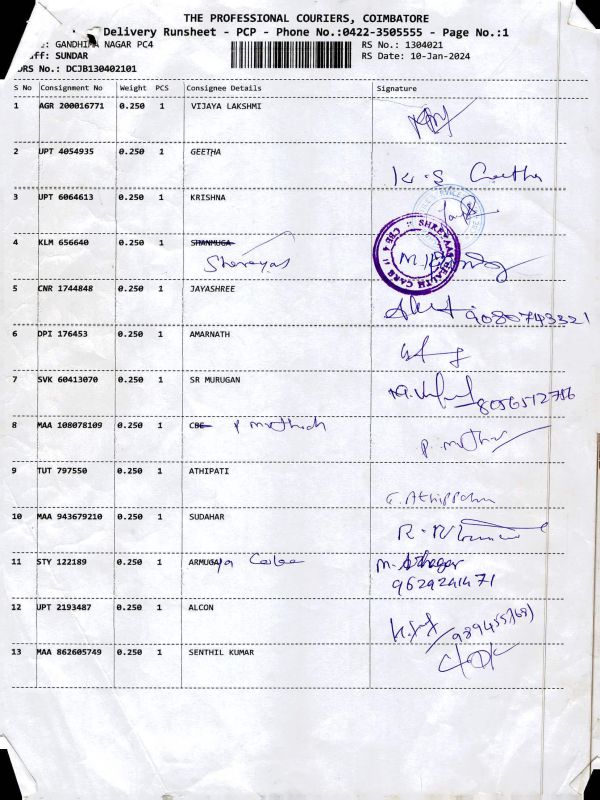 THE PROFESSIONAL COURIERS, COIMBATORE
Delivery Runsheet - PCP - Phone No.:0422-3505555 - Page No.:1
GANDHIMA NAGAR PC4 RS No.: 1304021
SUNDAR RS Date: 10-Jan-2024
DRS No.: DCJB130402101
S No Consignment No Weight PCS Consignee Details Signature
1 AGR 200016771 0.250 1 VIJAYA LAKSHMI
2 UPT 4054935 0.250 1 GEETHA
K.S Geetha
3 UPT 6064613 0.250 1 KRISHNA
4 KLM 656640 0.250 1 SHANMUGA
Shereyas
SHREYAAS HEALTH CARE CBE 4
5 CNR 1744848 0.250 1 JAYASHREE
9080743321
6 DPI 176453 0.250 1 AMARNATH
7 SVK 60413070 0.250 1 SR MURUGAN
8056512756
8 MAA 108078109 0.250 1 CBE
9 TUT 797550 0.250 1 ATHIPATI
10 MAA 943679210 0.250 1 SUDAHAR
11 STY 122189 0.250 1 ARMUGA
9629241471
12 UPT 2193487 0.250 1 ALCON
13 MAA 862605749 0.250 1 SENTHIL KUMAR